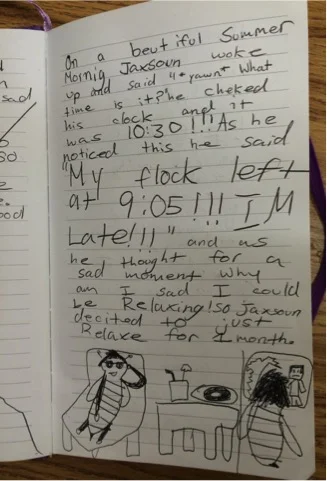 sad
so
e
e.
ood
On a beutiful Summer
Mornig Jaxsoun woke
up and said "*yawn* What
time is it?" he cheked
his clock and it
was 10:30!!! As he
noticed this he said
"My flock left
at 9:05!!! IM
Late!!!" and as
he thought for a
sad moment why
am I sad I could
be Relaxing! so Jaxsoun
decited to just
Relaxe for 1 month.